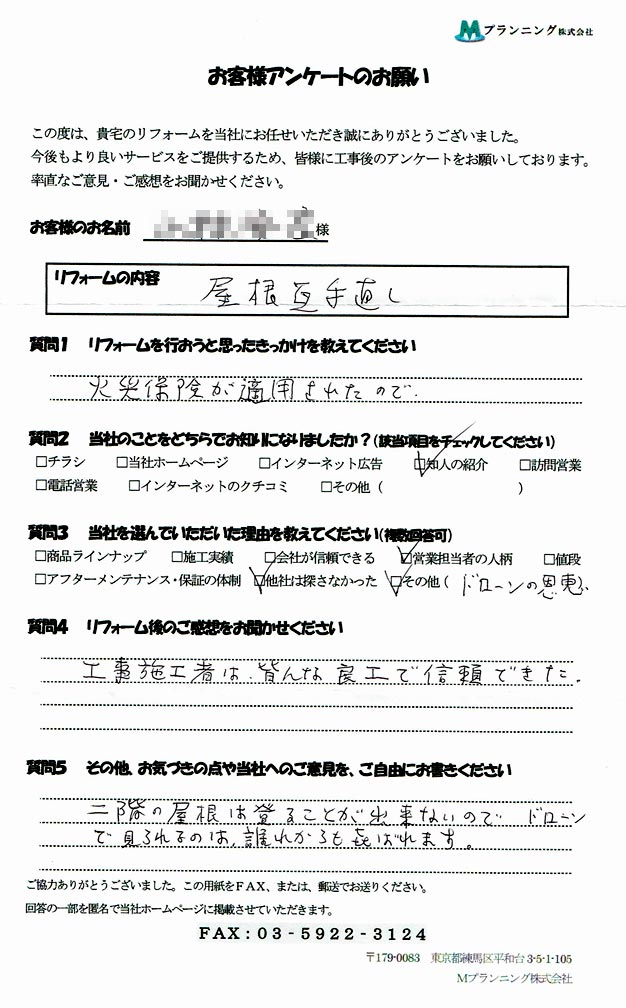 Mプランニング株式会社
お客様アンケートのお願い
この度は、貴宅のリフォームを当社にお任せいただき誠にありがとうございました。
今後もより良いサービスをご提供するため、皆様に工事後のアンケートをお願いしております。
率直なご意見・ご感想をお聞かせください。
お客様のお名前 様
リフォームの内容 屋根瓦手直し
質問1 リフォームを行おうと思ったきっかけを教えてください
火災保険が適用されたので.
質問2 当社のことをどちらでお知りになりましたか？(該当項目をチェックしてください)
□チラシ □当社ホームページ □インターネット広告 ☑知人の紹介 □訪問営業
□電話営業 □インターネットのクチコミ □その他 ( )
質問3 当社を選んでいただいた理由を教えてください(複数回答可)
□商品ラインナップ □施工実績 □会社が信頼できる ☑営業担当者の人柄 □値段
□アフターメンテナンス・保証の体制 ☑他社は探さなかった ☑その他 ( ドローンの恩恵)
質問4 リフォーム後のご感想をお聞かせください
工事施工者は、皆んな良工で信頼できた.
質問5 その他、お気づきの点や当社へのご意見を、ご自由にお書きください
二階の屋根は登ることが出来ないので ドローン
で見られるのは、誰れからも喜ばれます。
ご協力ありがとうございました。この用紙をFAX、または、郵送でお送りください。
回答の一部を匿名で当社ホームページに掲載させていただきます。
FAX:03-5922-3124
〒179-0083 東京都練馬区平和台3-5-1-105
Mプランニング株式会社